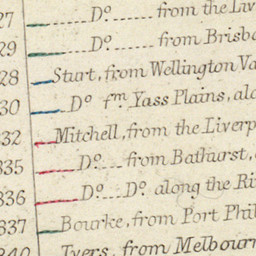 27 Dº from the Liv
29 Dº from Brisba
28 Sturt, from Wellington Va
30 Dº fm Yass Plains, alo
32 Mitchell, from the Liverp
835 Dº from Bathurst,
836 Dº Dº along the Ri
837 Bourke, from Port Phil
840 Tyers, from Melbour